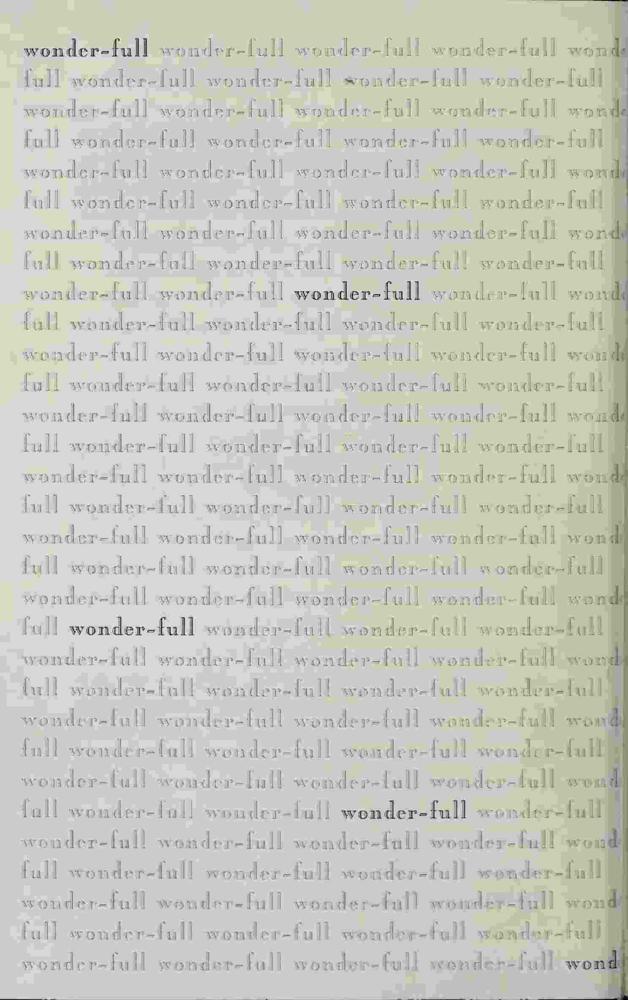 wonder-full wonder-full wonder-full wonder-full wond
full wonder-full wonder-full wonder-full wonder-full
wonder-full wonder-full wonder-full wonder-full wond
full wonder-full wonder-full wonder-full wonder-full
wonder-full wonder-full wonder-full wonder-full wond
full wonder-full wonder-full wonder-full wonder-full
wonder-full wonder-full wonder-full wonder-full wond
full wonder-full wonder-full wonder-full wonder-full
wonder-full wonder-full wonder-full wonder-full wond
full wonder-full wonder-full wonder-full wonder-full
wonder-full wonder-full wonder-full wonder-full wond
full wonder-full wonder-full wonder-full wonder-full
wonder-full wonder-full wonder-full wonder-full wond
full wonder-full wonder-full wonder-full wonder-full
wonder-full wonder-full wonder-full wonder-full wond
full wonder-full wonder-full wonder-full wonder-full
wonder-full wonder-full wonder-full wonder-full wond
full wonder-full wonder-full wonder-full wonder-full
wonder-full wonder-full wonder-full wonder-full wond
full wonder-full wonder-full wonder-full wonder-full
wonder-full wonder-full wonder-full wonder-full wond
full wonder-full wonder-full wonder-full wonder-full
wonder-full wonder-full wonder-full wonder-full wond
full wonder-full wonder-full wonder-full wonder-full
wonder-full wonder-full wonder-full wonder-full wond
full wonder-full wonder-full wonder-full wonder-full
wonder-full wonder-full wonder-full wonder-full wond
full wonder-full wonder-full wonder-full wonder-full
wonder-full wonder-full wonder-full wonder-full wond
full wonder-full wonder-full wonder-full wonder-full
wonder-full wonder-full wonder-full wonder-full wond